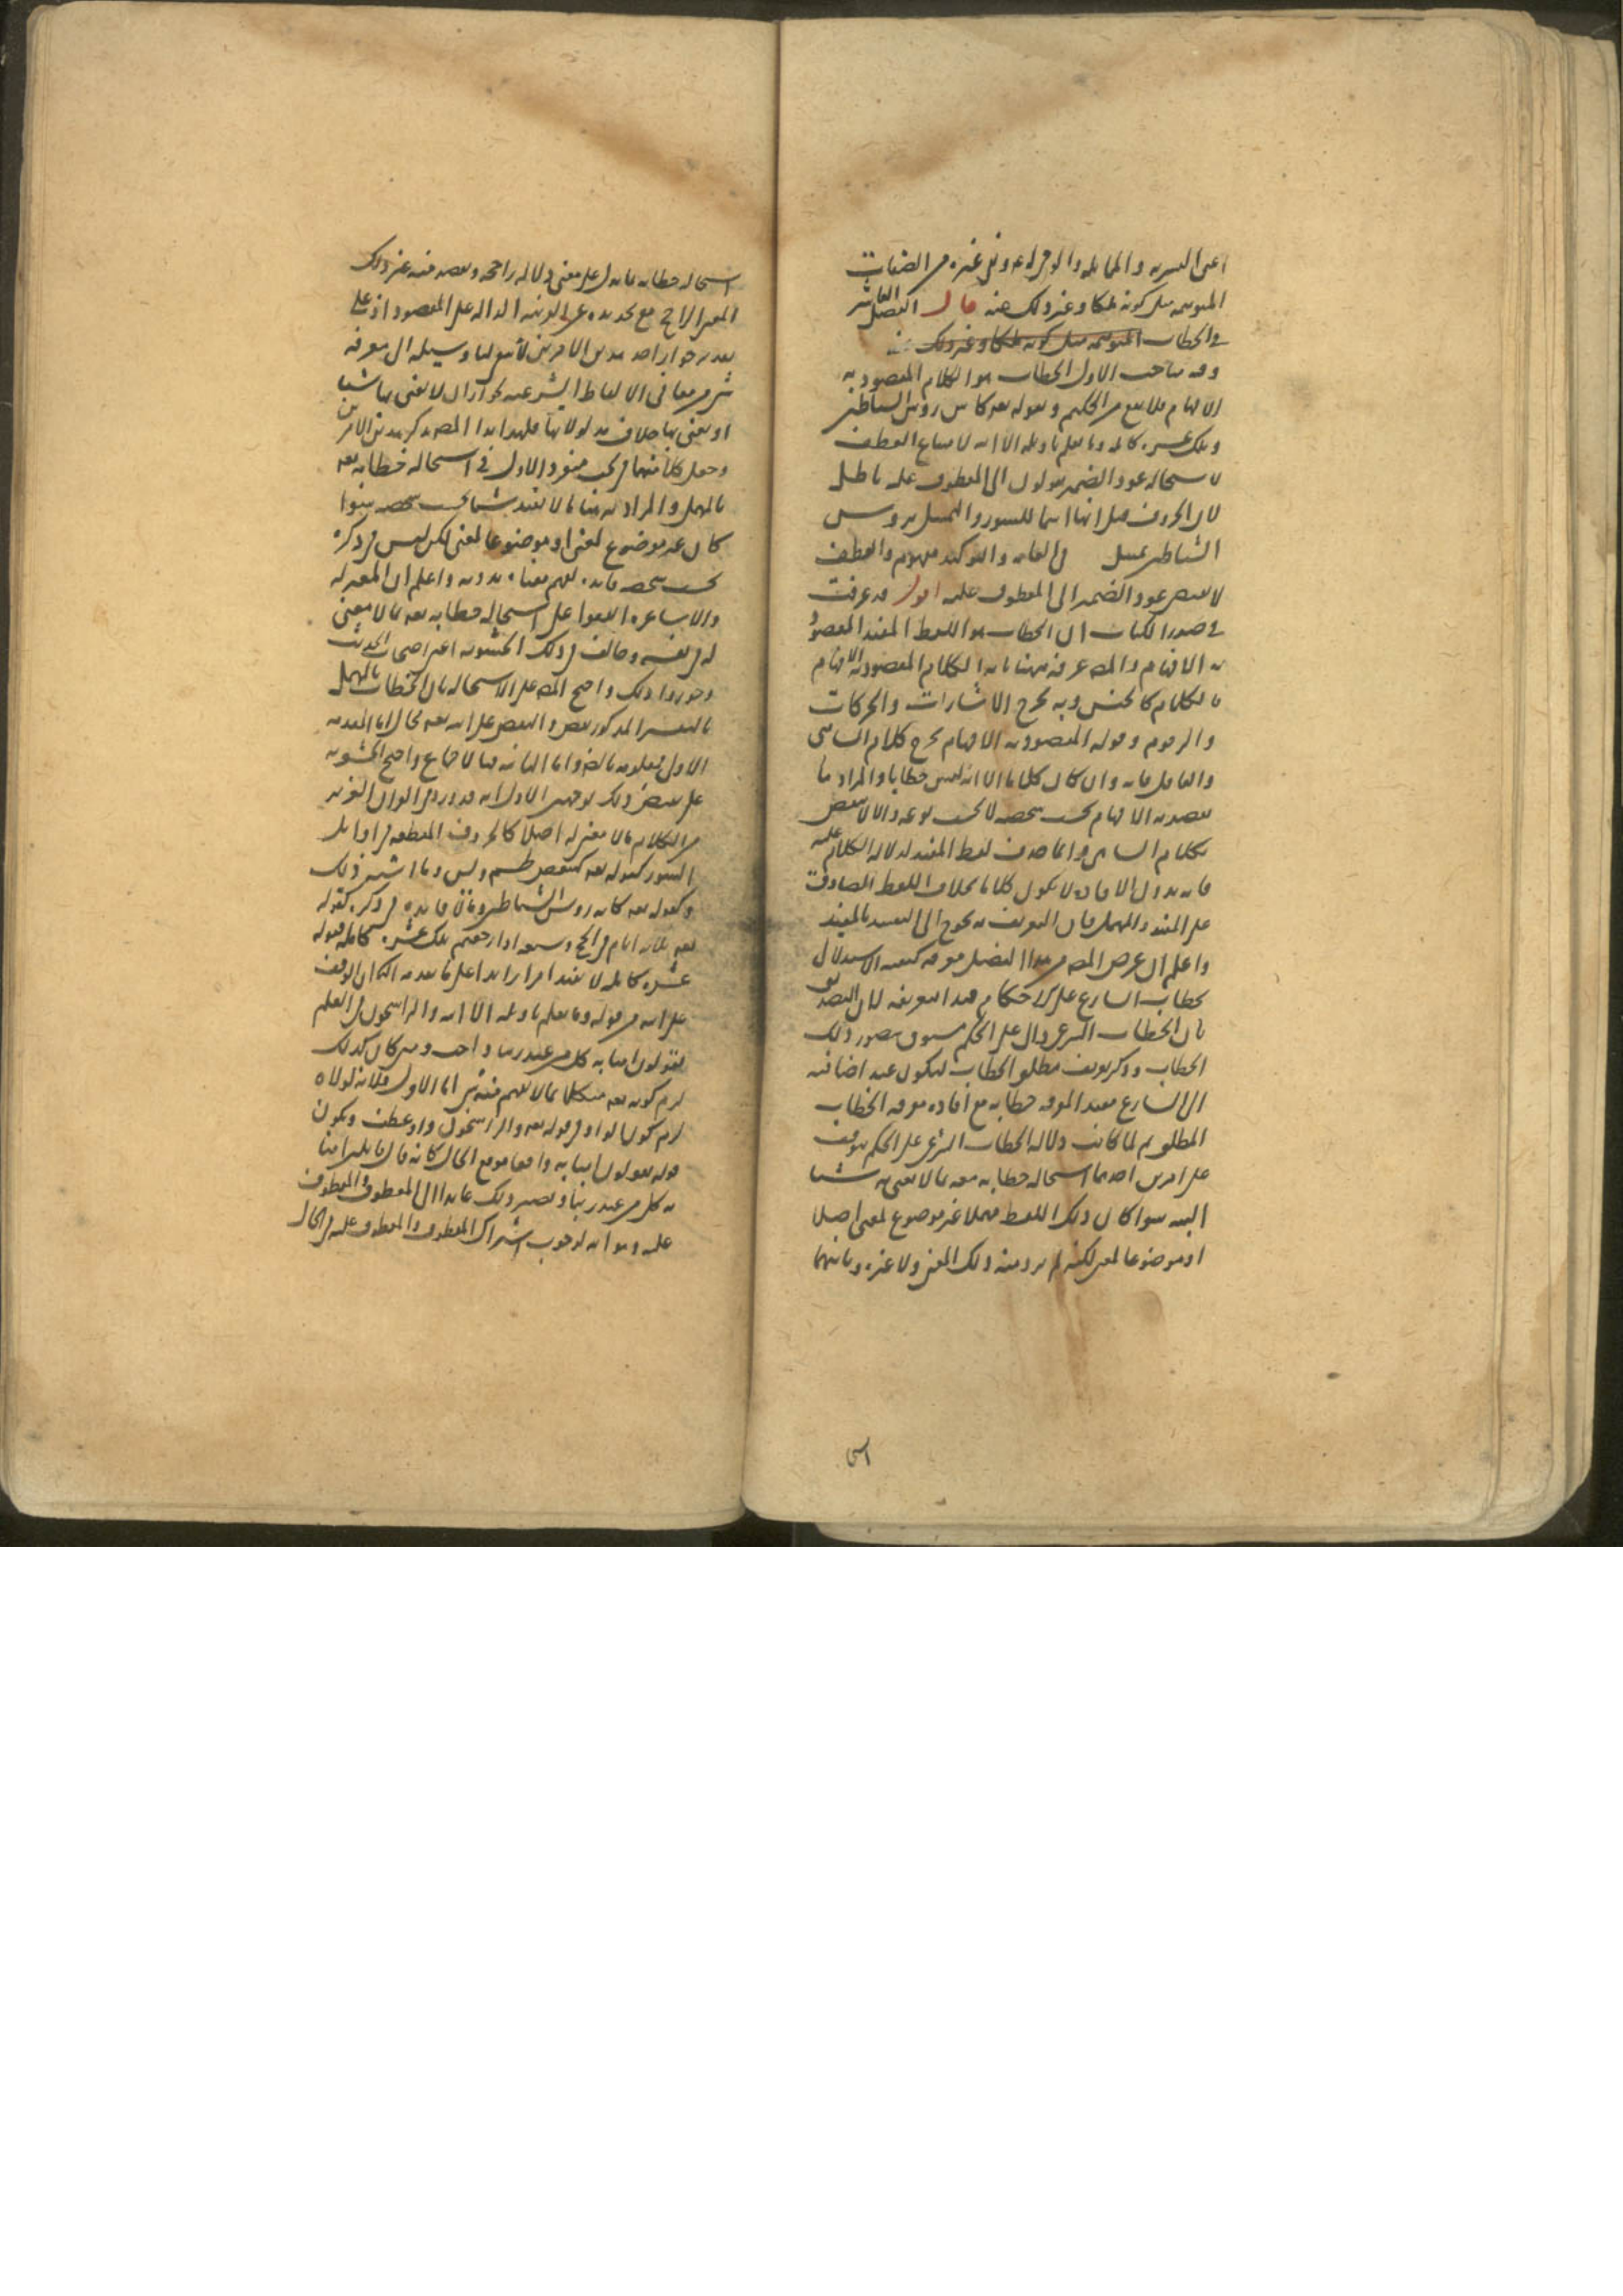 اعنى البشرية والمماثلة والوحى اليه ونفى غيره من الصفات
المتوهمة مثل كونه ملكا وغير ذلك عنه قال الفصل العاشر
فى الخطاب المتوهمة مثل كونه ملكا وغير ذلك عنه
وفيه مباحث الاول الخطاب هو الكلام المقصود به
الافهام فلا يقع من الحكيم وقوله تعه كانه روس الشياطين
وتلك عشرة كاملة وما يعلم تاويله الا الله لامتناع العطف
لاستحالة عود الضمير يقولون الى المعطوف عليه باطل
لان الحروف قيل انها اسما للسور والتمثيل بروس
الشياطين تمثيل فى القبح والتوكيد مفهوم والعطف
لا يقتضى عود الضمير الى المعطوف عليه اقول قد عرفت
فى صدر الكتاب ان الخطاب هو اللفظ المفيد المقصود
به الافهام والمصه عرفه ههنا بانه الكلام المقصود به الافهام
فالكلام كالجنس وبه يخرج الاشارات والحركات
والرقوم وقوله المقصود به الافهام يخرج كلام الساهى
والغافل فانه وان كان كلاما الا انه ليس خطابا والمراد ما
يقصد به الافهام بحسب شخصه لا بحسب نوعه والا لانتقض
بكلام الساهى وانما حذف لفظ المفيد لدلالة الكلام عليه
فانه بدون الافادة لا يكون كلاما بخلاف اللفظ الصادق
على المفيد والمهمل فان التعريف به يحوج الى التقييد بالمفيد
واعلم ان غرض المصه من هذا الفصل معرفة كيفية الاستدلال
بخطاب الشارع على الاحكام فبدا بتعريفه لان التصديق
بان الخطاب الشرعى دال على الحكم مسبوق بتصور ذلك
الخطاب وذكر تعريف مطلق الخطاب ليكون عند اضافته
الى الشارع مفيدا لمعرفة خطابه مع افادة معرفة الخطاب
المطلق ثم لما كانت دلالة الخطاب الشرعى على الحكم يتوقف
على امرين احدهما استحالة خطابه تعه بما لا يعنى به شيئا
البته سوا كان ذلك اللفظ مهملا غير موضوع لمعنى اصلا
او موضوعا لمعنى لكنه لم يرد منه ذلك المعنى ولا غيره وثانيهما
استحالة خطابه بما يدل على معنى دلالة راجحة ويقصد منه غير ذلك
المعنى الراجح مع تجرده عن القرينة الدالة على المقصود اذ على
تقدير جواز احد هذين الامرين لا يبقى لنا وسيلة الى معرفة
شى من معانى الالفاظ الشرعية لجواز ان لا يعنى بها شيئا
او يعنى بها خلاف مدلولاتها فلهذا بدا المصه بذكر هذين الامرين
وجعل كلا منهما فى بحث منفرد الاول فى استحالة خطابه تعه
بالمهمل والمراد به هنا ما لا يفيد شيئا بحسب شخصه سوا
كان غير موضوع لمعنى او موضوعا لمعنى لكن ليس فى ذكره
بحسب شخصه فايدة لفهم معناه بدونه واعلم ان المعتزلة
والاشاعرة اتفقوا على استحالة خطابه تعه بما لا معنى
له فى نفسه وخالف فى ذلك الحشوية اعنى اصحاب الحديث
وجوزوا ذلك واحتج المصه على الاستحالة بان الخطاب بالمهمل
بالتفسير المذكور نقص والنقص على الله تعه محال اما المقدمة
الاولى فمعلومة بالضرورة واما الثانية فبالاجماع واحتج الحشوية
على نقيض ذلك بوجهين الاول انه قد ورد فى القران العزيز
من الكلام ما لا معنى له اصلا كالحروف المقطعة فى اوايل
السور كقوله تعه كهيعص طسم ويس وما اشبه ذلك
وكقوله تعه كانه روس الشياطين وما لا فايدة فى ذكره كقوله
تعه ثلثة ايام فى الحج وسبعة اذا رجعتم تلك عشرة كاملة فقوله
عشرة كاملة لا يفيد امرا زايدا على ما تقدمه الثانى الوقف
على الله من قوله وما يعلم تاويله الا الله والراسخون فى العلم
يقولون امنا به كل من عند ربنا واجب ومتى كان كذلك
لزم كونه تعه متكلما بما لا يفهم منه شى اما الاول فلانه لولاه
لزم كون الواو فى قوله تعه والراسخون واو عطف ويكون
قوله يقولون امنا به واقعا موقع الحال كانه قال قايلين امنا
به كل من عند ربنا ويصير ذلك عايدا الى المعطوف والمعطوف
عليه وهو الله لوجوب اشتراك المعطوف والمعطوف عليه فى الحال